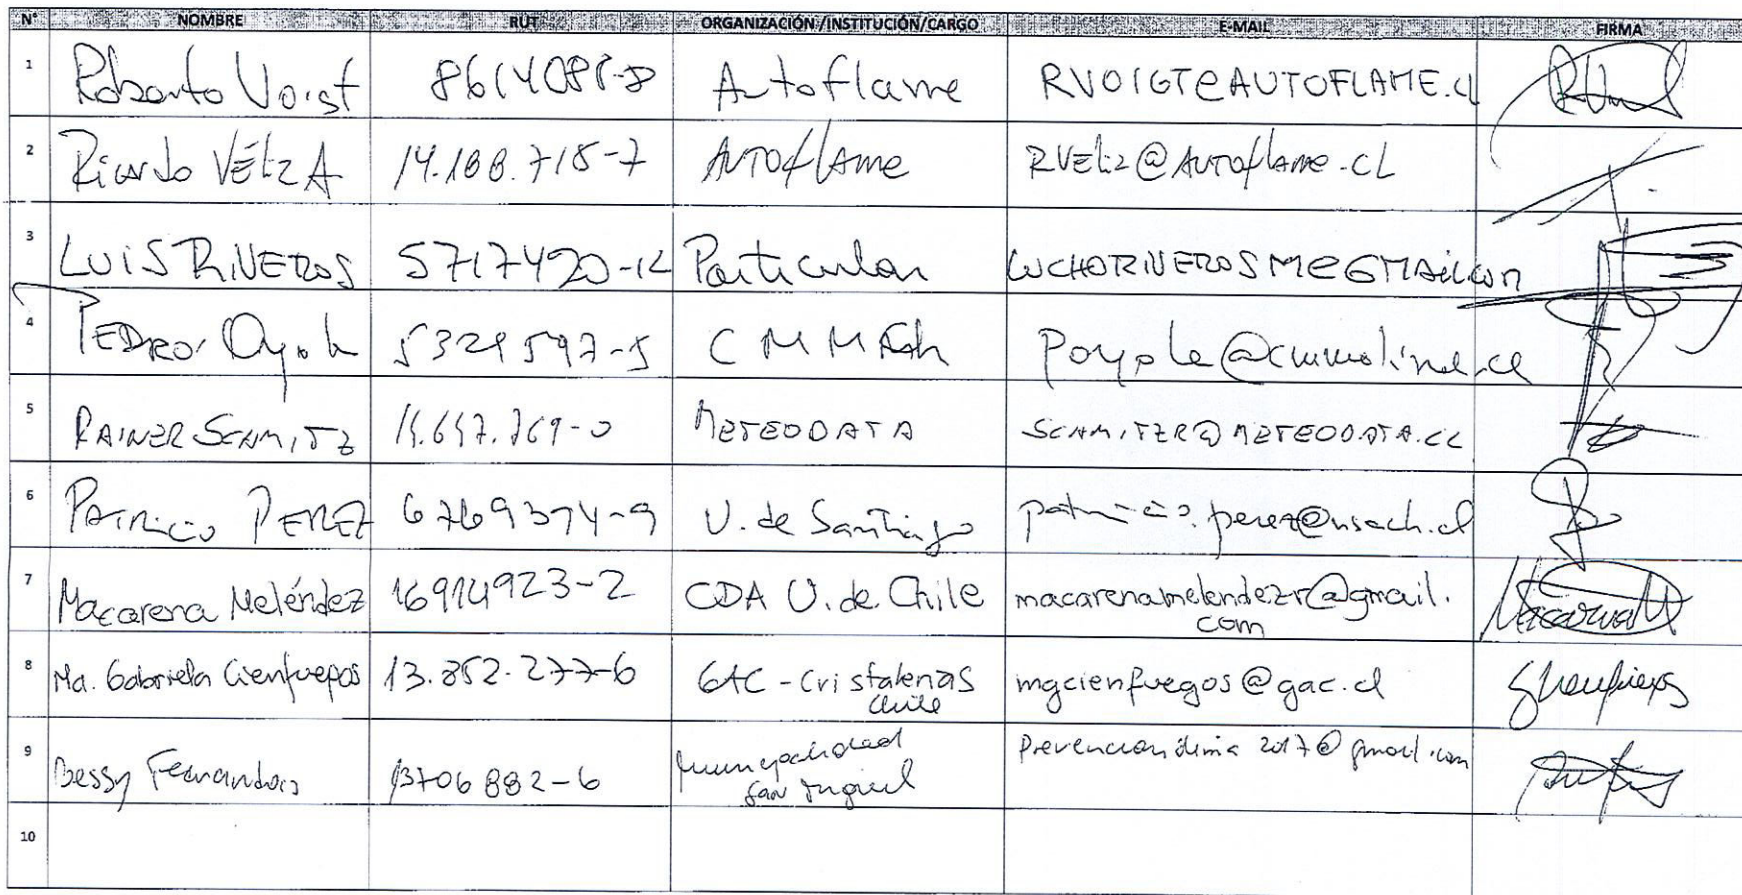 N° NOMBRE RUT ORGANIZACIÓN /INSTITUCIÓN/CARGO E-MAIL FIRMA
1 Roberto Voigt Autoflame RVOIGT@AUTOFLAME.CL
2 Ricardo VÉLIZ A 14.188.718-7 Autoflame RVELiz@Autoflame.CL
3 LUIS RIVEROS 5717420-K Particular LUCHORIVEROSM@GMAIL.COM
4 PEDRO Oyola
5 RAINER SCHMITZ METEODATA SCHMITZR@METEODATA.CL
6 PATRICIO PEREZ 6769374-9 U. de Santiago patricio.perez@usach.cl
7 Macarena Meléndez 16914923-2 CDA U. de Chile macarenamelendezr@gmail.
com
8 Ma. Gabriela Cienfuegos 13.852.277-6 GAC - Cristalerías
Chile mgcienfuegos@gac.cl
9 Bessy 13706882-6 Municipalidad
San Miguel
10